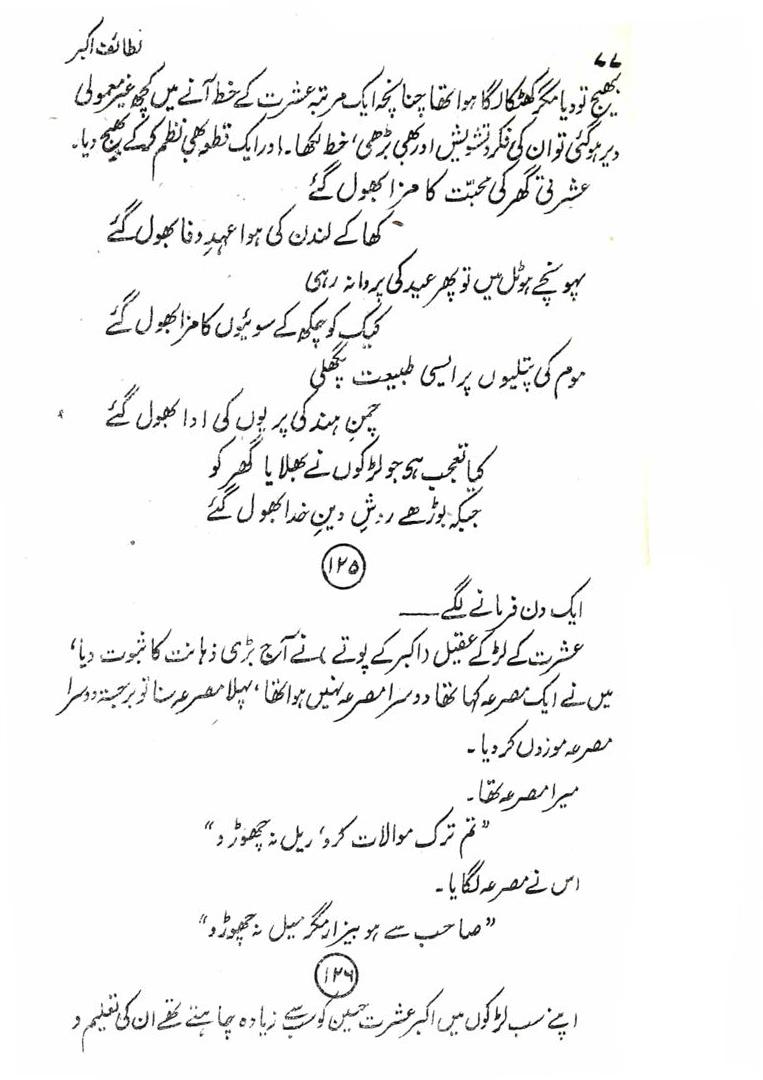 ۷۷ لطائف اکبر
بھیج تو دیا مگر کھٹکا لگا ہوا تھا چنانچہ ایک مرتبہ عشرت کے خط آنے میں کچھ غیر معمولی
دیر ہوگئی تو ان کی فکر و تشویش اور بھی بڑھی، خط لکھا۔ اور ایک قطعہ بھی نظم کر کے بھیج دیا۔
عشرتی گھر کی محبّت کا مزا بھول گئے
کھا کے لندن کی ہوا عہدِ وفا بھول گئے
پہونچے ہوٹل میں تو پھر عید کی پروا نہ رہی
کیک کو چکھ کے سوئیوں کا مزا بھول گئے
موم کی پتلیوں پر ایسی طبیعت پگھلی
چمنِ ہند کی پریوں کی ادا بھول گئے
کیا تعجب ہی جو لڑکوں نے بھلایا گھر کو
جبکہ بوڑھے روشِ دینِ خدا بھول گئے
۱۲۵
ایک دن فرمانے لگے ——
عشرت کے لڑکے عقیل (اکبر کے پوتے) نے آج بڑی ذہانت کا ثبوت دیا،
میں نے ایک مصرعہ کہا تھا دوسرا مصرعہ نہیں ہوا تھا، پہلا مصرعہ سنا تو برجستہ دوسرا
مصرعہ موزوں کر دیا۔
میرا مصرعہ تھا۔
"تم ترک موالات کرو، ریل نہ چھوڑو"
اس نے مصرعہ لگایا۔
"صاحب سے ہو بیزار مگر سیل نہ چھوڑو"
۱۲۶
اپنے سب لڑکوں میں اکبر عشرت حسین کو سب سے زیادہ چاہتے تھے ان کی تعلیم و